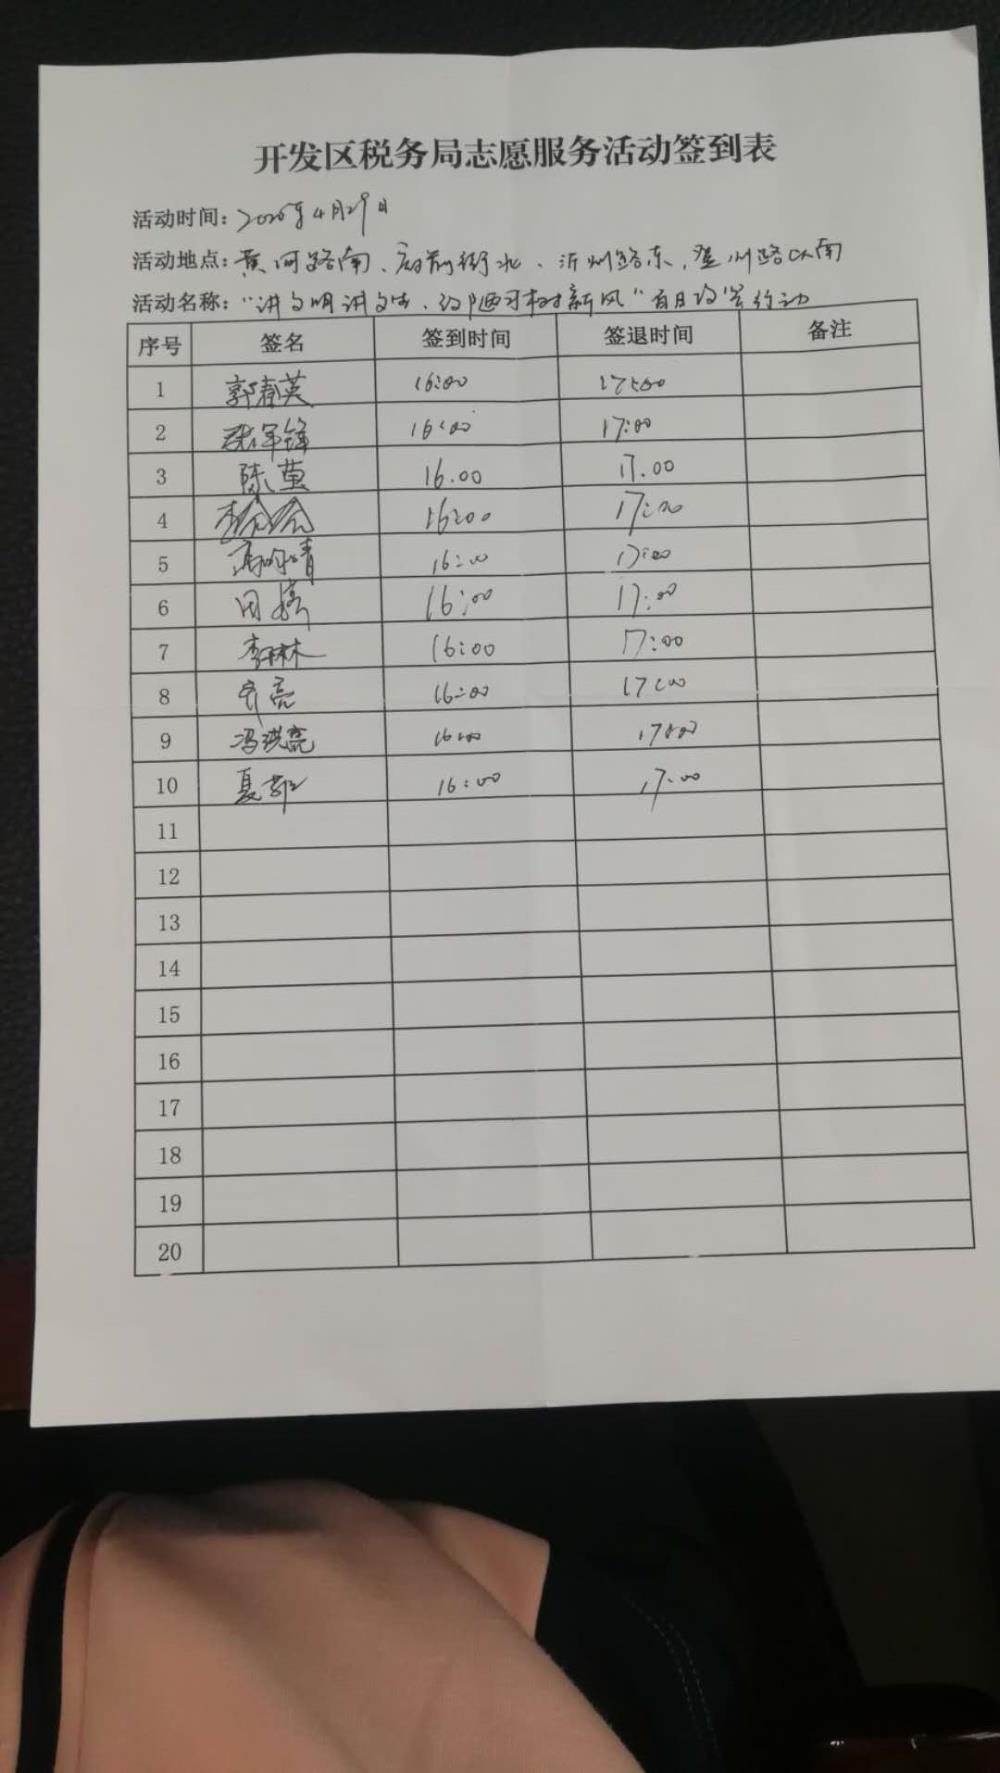 开发区税务局志愿服务活动签到表
活动时间：2020年4月29日
活动地点：黄河路南、府前街北、沂州路东、登州路以南
活动名称：“讲文明讲卫生、改陋习树新风”百日攻坚行动
序号 签名 签到时间 签退时间 备注
1 郭春英 16:00 17:00
2 16:00 17:00
3 陈英 16.00 17.00
4 16:00 17:00
5 16:00 17:00
6 田婷 16:00 17:00
7 李林 16:00 17:00
8 亮 16:00 17:00
9 冯洪亮 16:00 17:00
10 夏 16:00 17:00
11
12
13
14
15
16
17
18
19
20